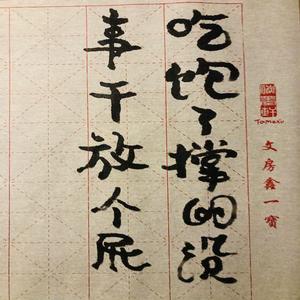 吃饱了撑的没
事干放个屁
文房鑫一寶